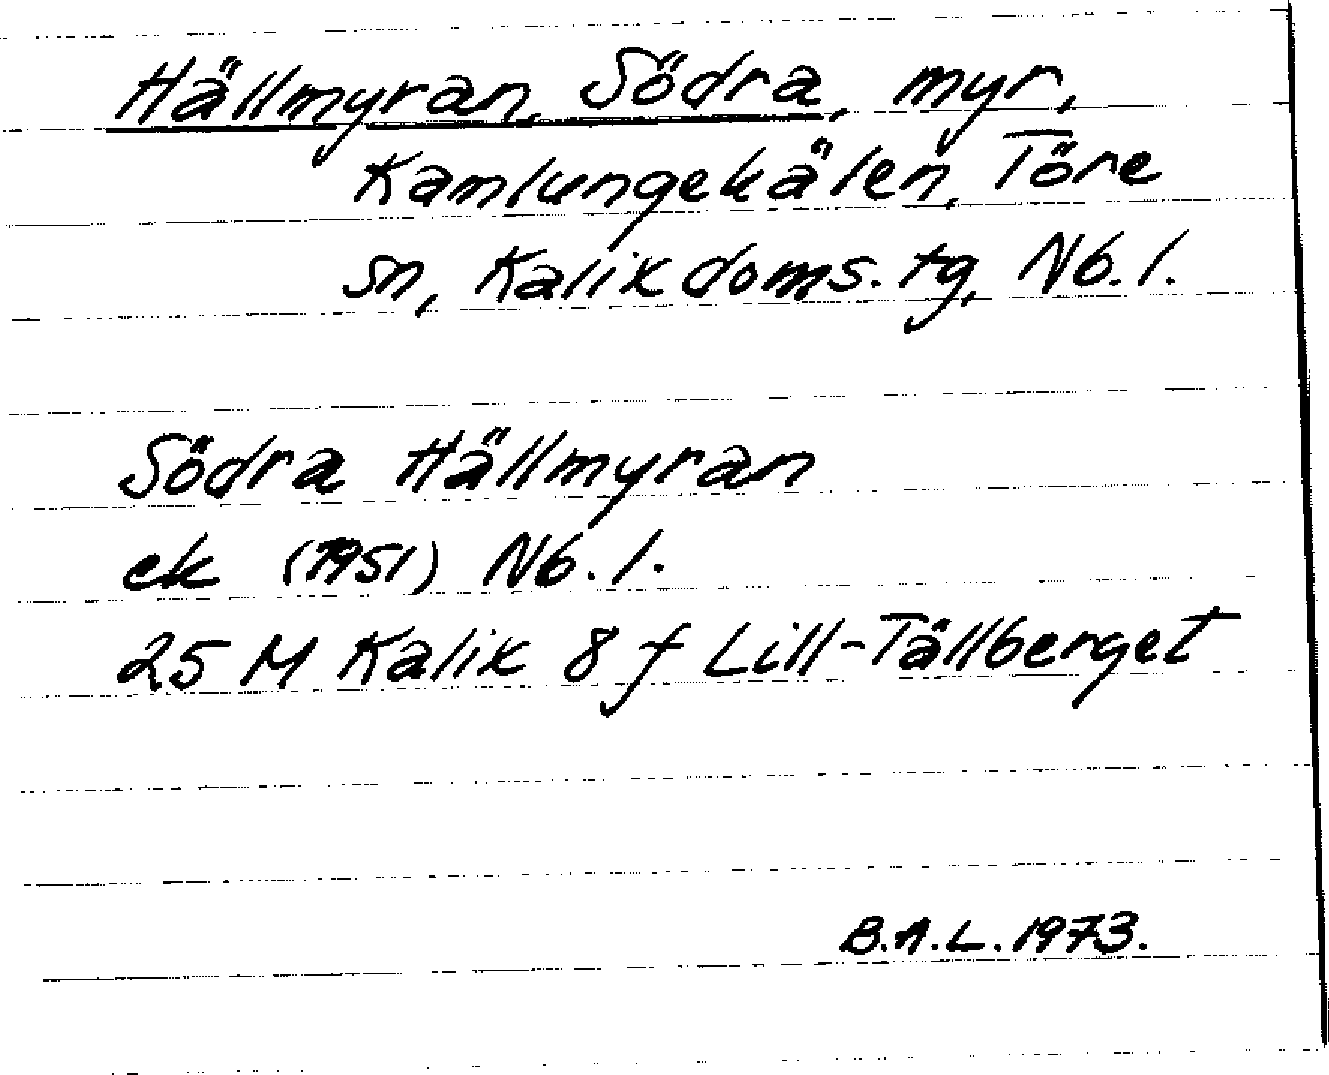 Hällmyran, Södra, myr,
Kamlungekälen, Töre
sn, Kalix doms. tg, Nb. l.
Södra Hällmyran
ek (1951) Nb. l.
25 M Kalix 8 f Lill-Tällberget
B.A.L. 1973.